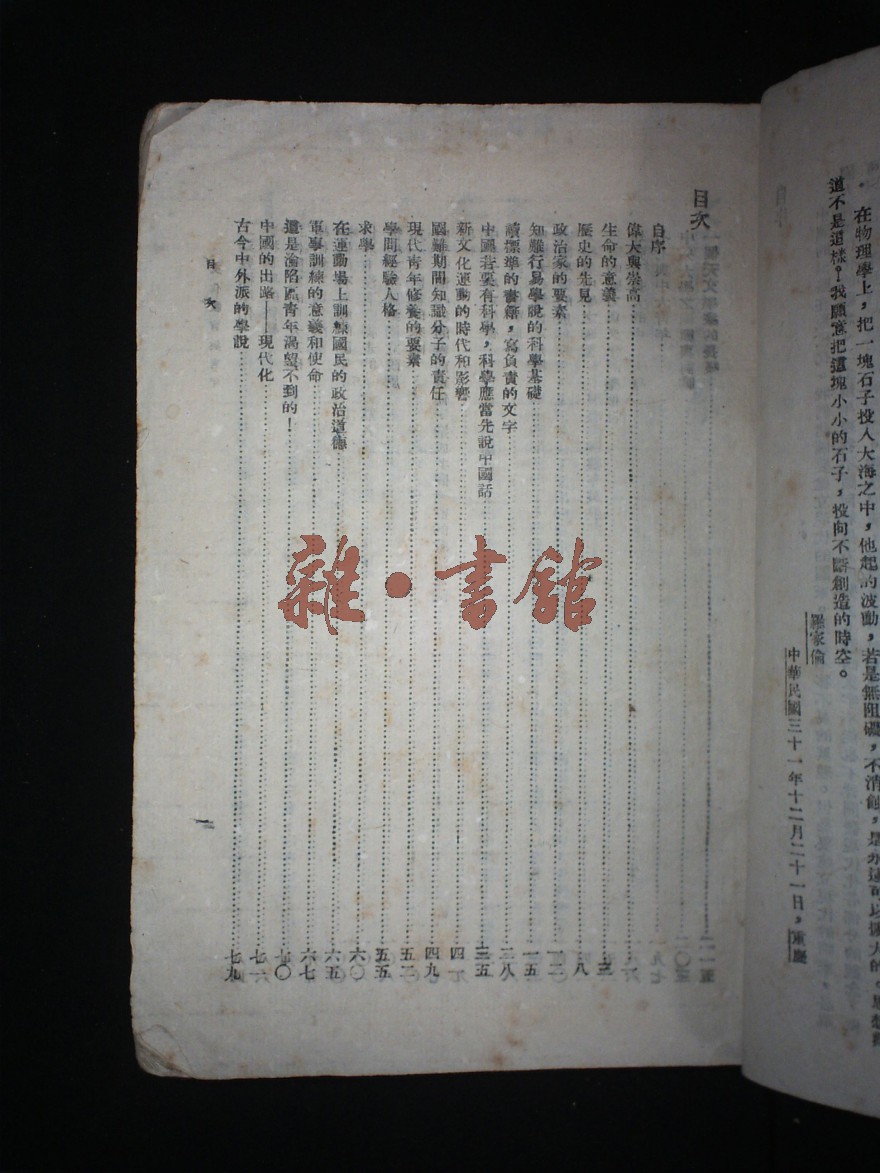 在物理學上，把一塊石子投入大海之中，他起的波動，若是無阻礙，不消蝕，是永遠可以擴大的。思想
道不是這樣？我願意把這塊小小的石子，投向不斷創造的時空。
羅家倫
中華民國三十一年十二月二十一日，重慶
目次
自序
偉大與崇高……一
生命的意義……
歷史的先見……八
政治家的要素……一二
知難行易學說的科學基礎……一五
讀標準的書籍，寫負責的文字……二八
中國若要有科學，科學應當先說中國話……三五
新文化運動的時代和影響……四一
國難期間知識分子的責任……四九
現代青年修養的要素……五二
學問經驗人格……五五
求學……六〇
在運動場上訓練國民的政治道德……六五
軍事訓練的意義和使命……六七
這是淪陷區青年渴望不到的！……七〇
中國的出路——現代化……七六
古今中外派的學說……七九
目次
一
雜·書館